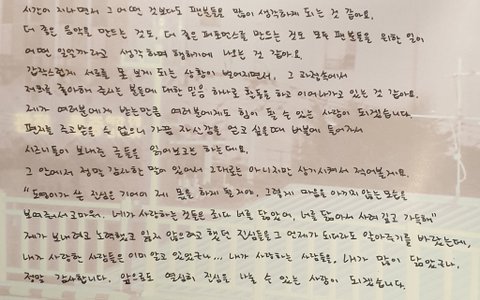 시간이 지나면서 그 어떤 것보다도 팬분들을 많이 생각하게 되는 것 같아요.
더 좋은 음악을 만드는 것도, 더 좋은 퍼포먼스를 만드는 것도 모두 팬분들을 위한 일이
어떤 일일까라고 생각하며 행하기에 나오는 것 같아요.
갑작스럽게 서로를 못 보게 되는 상황이 벌어지면서, 그 과정속에서
저희를 좋아해 주시는 분들에 대한 믿음 하나로 활동을 하고 이어나가고 있는 것 같아요.
제가 여러분에게 받는만큼 여러분에게도 힘이 될 수 있는 사람이 되겠습니다.
편지를 주고받을 수 없으니 가끔 자신감을 얻고 싶을때 버블에 들어가서
시즈니들이 보내준 글들을 읽어보고는 하는데요.
그 안에서 정말 감사한 말이 있어서 그대로는 아니지만 상기시켜서 적어볼게요.
"도영이가 쓴 진심은 기어이 제 몫을 하게 될거야, 그렇게 마음을 아끼지 않는 모습을
보여줘서 고마워. 네가 사랑하는 것들은 죄다 너를 닮았어, 너를 닮아서 사려 깊고 가득해"
제가 보내려고 노력했고 잃지 않으려고 했던 진심들을 그 언제가 되더라도 알아주기를 바랐는데,
내가 사랑한 사람들은 이미 알고 있었구나... 내가 사랑하는 사람들을, 내가 많이 닮았구나.
정말 감사합니다. 앞으로도 열심히 진심을 나눌 수 있는 사람이 되겠습니다.